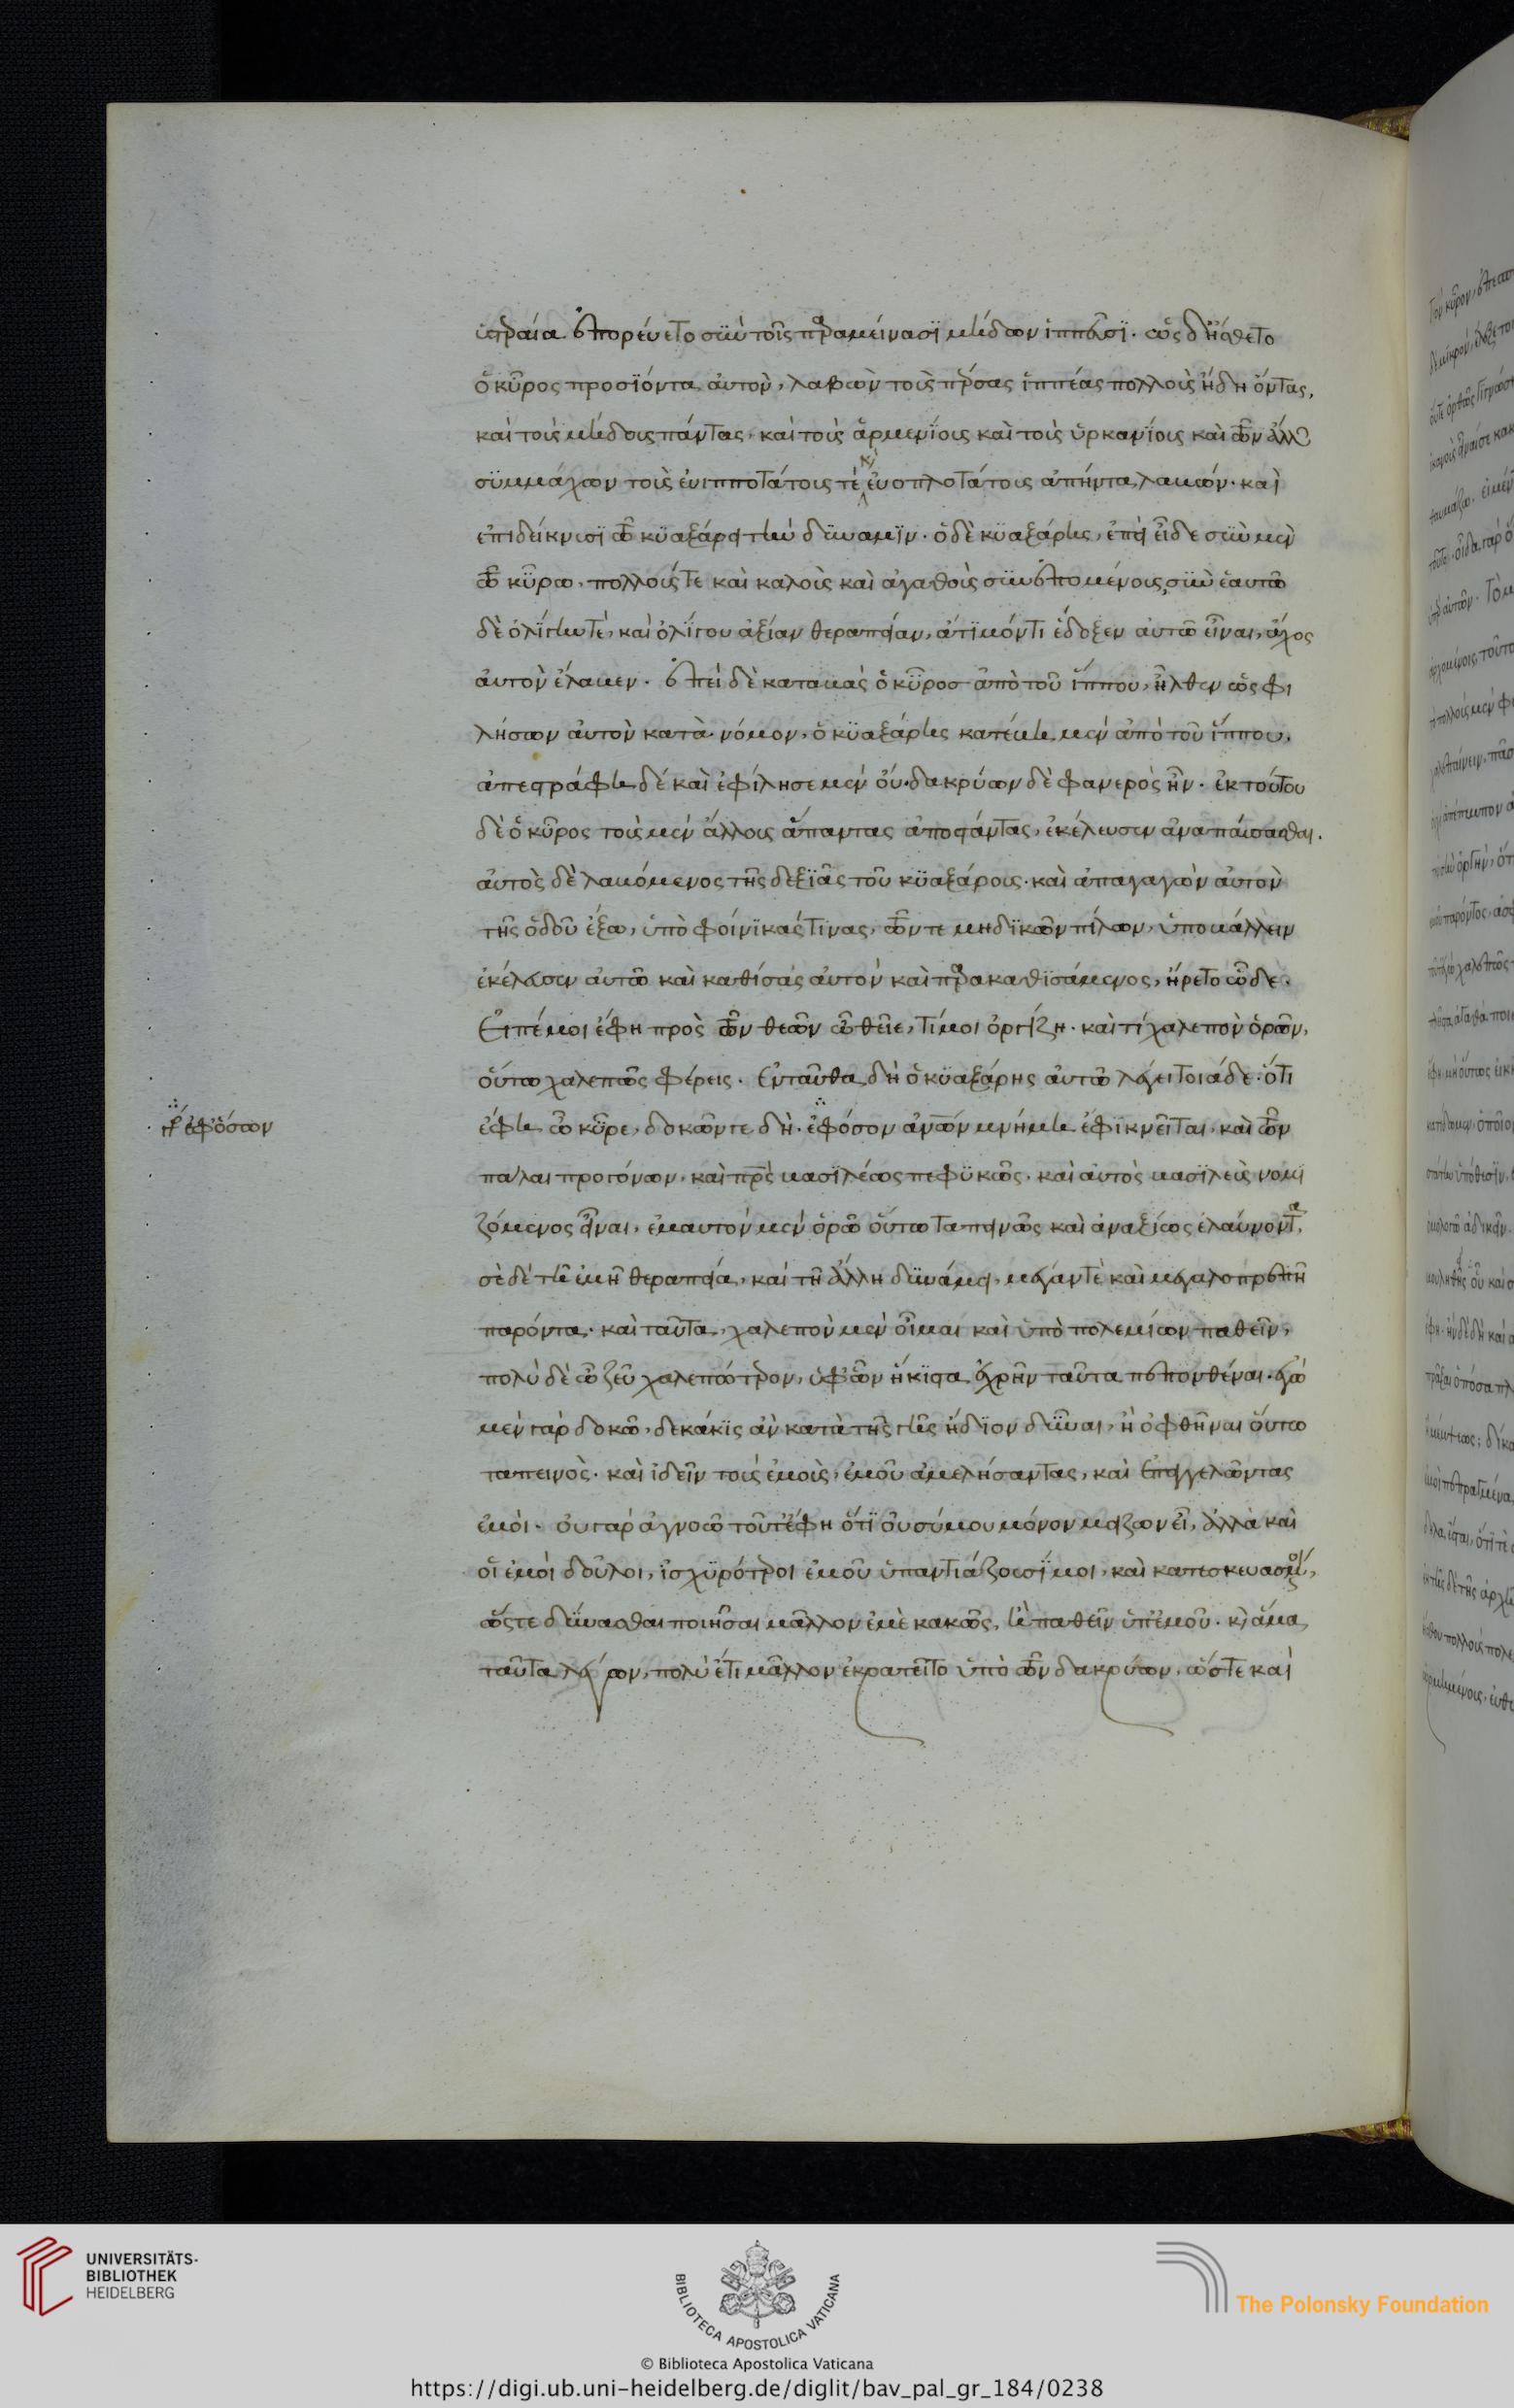 ὑστεραία ἐπορεύετο σὺν τοῖς παραμείνασϊ μήδων ἱππεῦσϊ. ὡς δ' ἤσθετο
ὁ κῦρος προσϊόντα αὐτὸν, λαβὼν τοὺς πέρσας ἱππέας πολλοὺς ἤδη ὄντας,
καὶ τοὺς μήδους πάντας, καὶ τοὺς ἀρμενΐους καὶ τοὺς ὑρκανΐους καὶ τῶν ἄλλων
συμμάχων τοὺς εὐιπποτάτους τὲ καὶ εὐοπλοτάτους ἀπήντα, λαβών. καὶ
ἐπιδείκνυσϊ τῶ κυαξάρει τὴν δύναμϊν. ὁ δὲ κυαξάρης, ἐπεὶ εἶδε σὺν μὲν
τῶ κύρω, πολλούς τε καὶ καλοὺς καὶ ἀγαθοὺς συνεπομένους, σὺν ἑαυτῶ
δὲ ὀλίγην τὲ, καὶ ὀλίγου ἀξίαν θεραπείαν, ἄτϊμόν τι ἔδοξεν αὐτῶ εἶναι, ἄχος
αὐτὸν ἔλαβεν. ἐπεὶ δὲ καταβὰς ὁ κῦρος ἀπὸ τοῦ ἵππου, ἦλθεν ὡς φι
λήσων αὐτὸν κατὰ νόμον, ὁ κυαξάρης κατέβη μὲν ἀπὸ τοῦ ἵππου,
ἀπεστράφη δέ καὶ ἐφίλησε μὲν οὔ. δακρύων δὲ φανερὸς ἦν. ἐκ τούτου
δὲ ὁ κῦρος τοὺς μὲν ἄλλους ἅπαντας ἀποστάντας, ἐκέλευσεν ἀναπαύσασθαι.
αὐτὸς δὲ λαβόμενος τῆς δεξϊᾶς τοῦ κυαξάρους. καὶ ἀπαγαγὼν αὐτὸν
τῆς ὁδοῦ ἔξω, ὑπὸ φοίνϊκάς τϊνας, τῶν τε μηδϊκῶν πίλων, ὑποβάλλειν
ἐκέλευσεν αὐτῶ καὶ καθίσας αὐτὸν καὶ παρακαθϊσάμενος, ἤρετο ὧδε.
Εἰπέ μοι ἔφη πρὸς τῶν θεῶν ὦ θεῖε, τί μοι ὀργίζη. καὶ τί χαλεπὸν ὁρῶν,
οὕτω χαλεπῶς φέρεις. Ἐνταῦθα δὴ ὁ κυαξάρης αὐτῶ λέγει τοιάδε. ὅτι
γρ. ἐφ' ὅσων
ἔφη ὦ κῦρε, δοκῶν τε δὴ. ἐφόσον ἀνῶν μνήμη ἐφϊκνεῖται, καὶ τῶν
πάλαι προγόνων. καὶ πρς βασϊλέως πεφυκὼς. καὶ αὐτὸς βασϊλεὺς νομι
ζόμενος εἶναι, ἐμαυτὸν μὲν ὁρῶ οὕτω ταπεινῶς καὶ ἀναξίως ἐλαύνοντα,
σὲ δὲ τῆ ἐμῆ θεραπεία, καὶ τῆ ἄλλη δυνάμει, μέγαν τὲ καὶ μεγαλοπρεπῆ
παρόντα. καὶ ταῦτα, χαλεπὸν μὲν οἶμαι καὶ ὑπὸ πολεμίων παθεῖν,
πολὺ δὲ ὦ ζεῦ χαλεπώτερον, ὑφ' ὧν ἥκϊστα ἐχρῆν ταῦτα πεπονθέναι. ἐγὼ
μὲν γὰρ δοκῶ, δεκάκϊς ἂν κατὰ τῆς γῆς ἥδϊον δῦναι, ἢ ὀφθῆναι οὕτω
ταπεινὸς. καὶ ἰδεῖν τοὺς ἐμοὺς, ἐμοῦ ἀμελήσαντας, καὶ ἐπεγγελῶντας
ἐμοὶ. οὐ γὰρ ἀγνοῶ τοῦτ' ἔφη ὅτϊ οὐ σύ μου μόνον μείζων εἶ, ἀλλὰ καὶ
οἱ ἐμοὶ δοῦλοι, ἰσχυρότεροι ἐμοῦ ὑπαντιάζουσί μοι, καὶ κατεσκευασμένοι,
ὥστε δύνασθαι ποιῆσαι μᾶλλον ἐμὲ κακῶς, ἢ παθεῖν ὑπ' ἐμοῦ. κὶ ἅμα
ταῦτα λέγων, πολὺ ἔτι μᾶλλον ἐκρατεῖτο ὑπὸ τῶν δακρύων, ὥστε καὶ
UNIVERSITÄTS-
BIBLIOTHEK
HEIDELBERG
BIBLIOTECA APOSTOLICA VATICANA
The Polonsky Foundation
© Biblioteca Apostolica Vaticana
https://digi.ub.uni-heidelberg.de/diglit/bav_pal_gr_184/0238